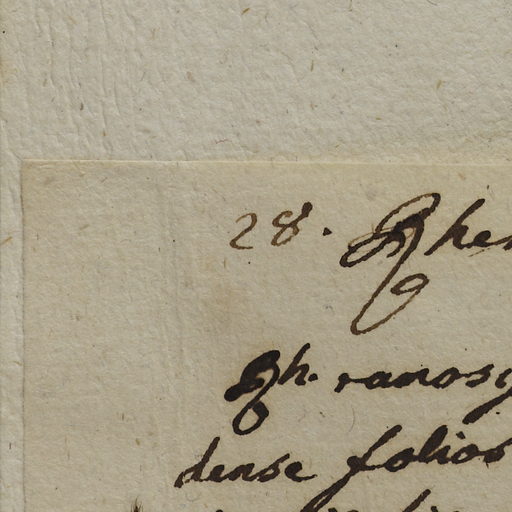 28. Rhe
Rh. ramos
dense folios